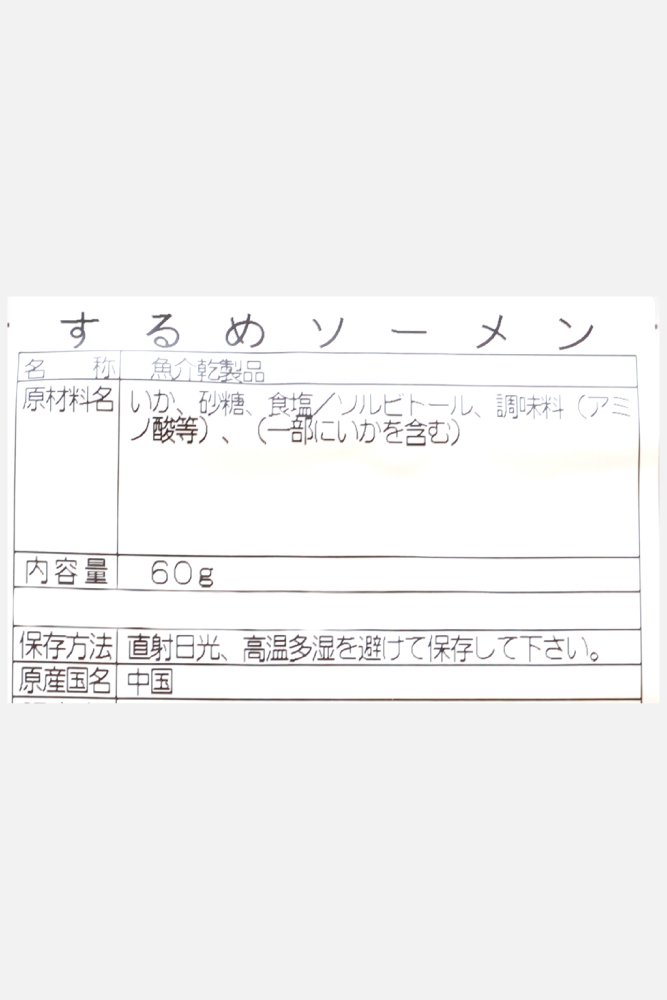 するめソーメン
名称 魚介乾製品
原材料名 いか、砂糖、食塩／ソルビトール、調味料（アミ
ノ酸等）、（一部にいかを含む）
内容量 60g
保存方法 直射日光、高温多湿を避けて保存して下さい。
原産国名 中国